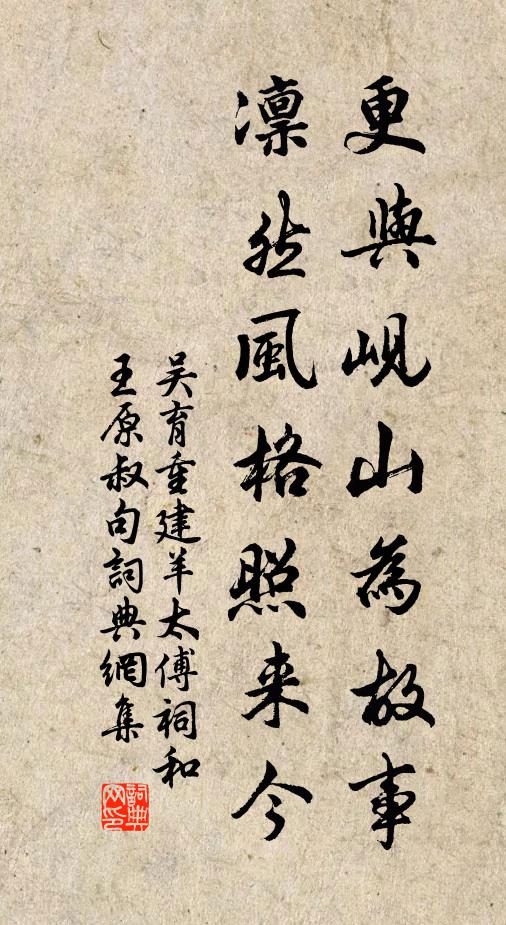 更與峴山為故事
凛然風格照来今
吳育重建羊太傅祠和
王原叔句詞典網集
詞典
网印